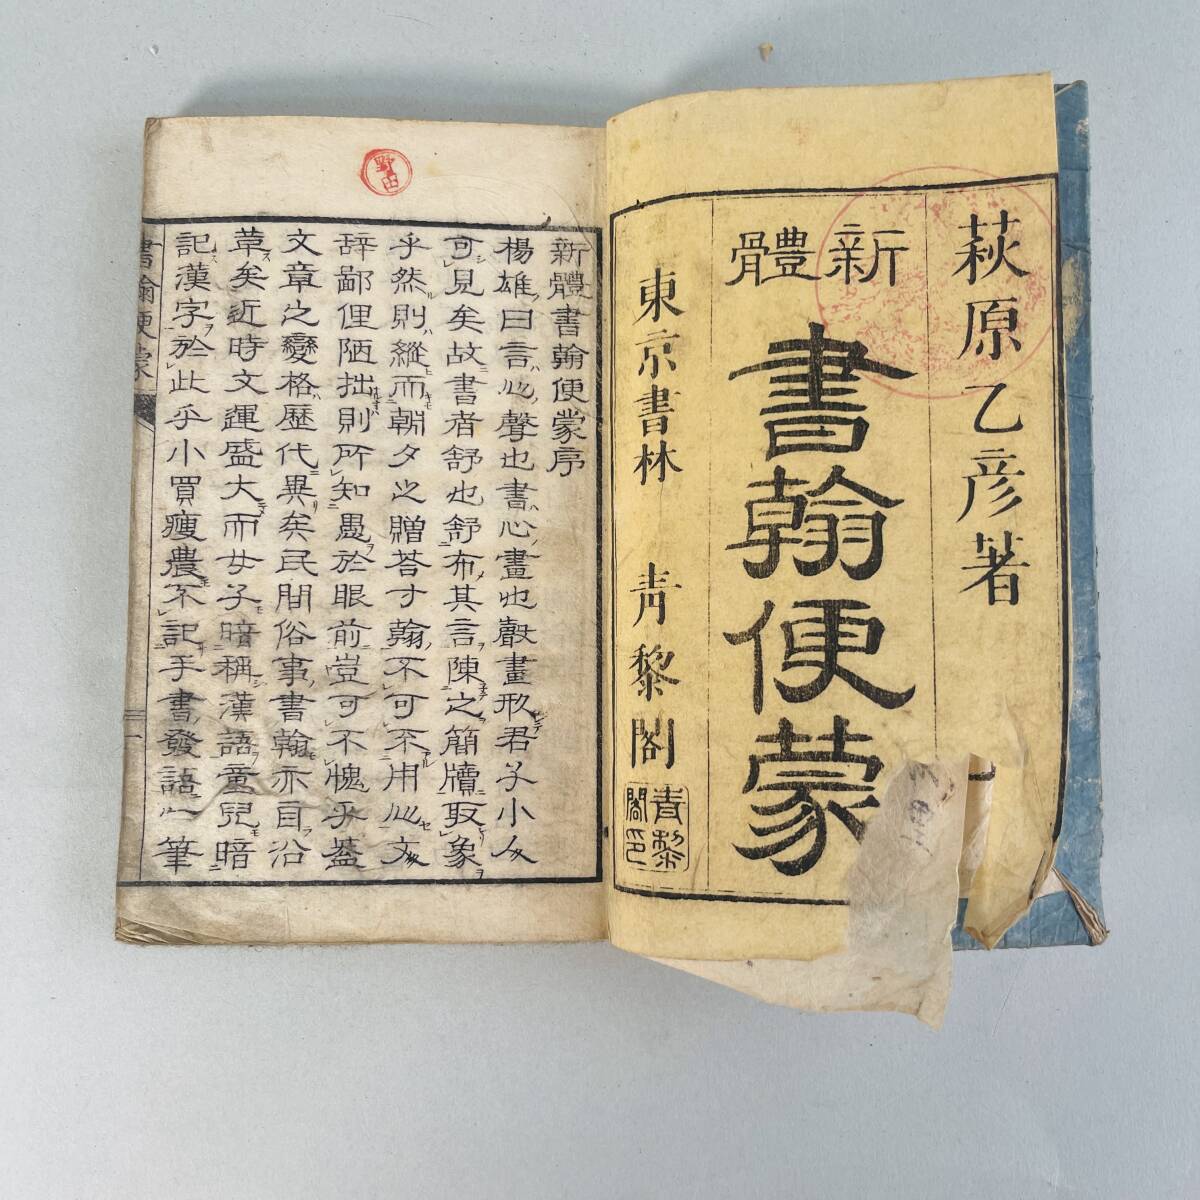 萩原乙彦著
新體
書翰便蒙
東京書林 青黎閣
青黎閣印
野田
新體書翰便蒙序
楊雄曰言心聲也書心畫也聲畫形君子小人
可見矣故書者舒也舒布其言陳之簡牘取象
乎然則縱而朝夕之贈答寸翰不可不用心文
辞鄙俚陋拙則所知愚於眼前豈可不愧乎蓋
文章之變格歴代異矣民間俗事書翰亦自沿
革矣近時文運盛大而女子暗稱漢語童兒暗
記漢字於此乎小買瘦農不記手書發語一筆
書翰便蒙